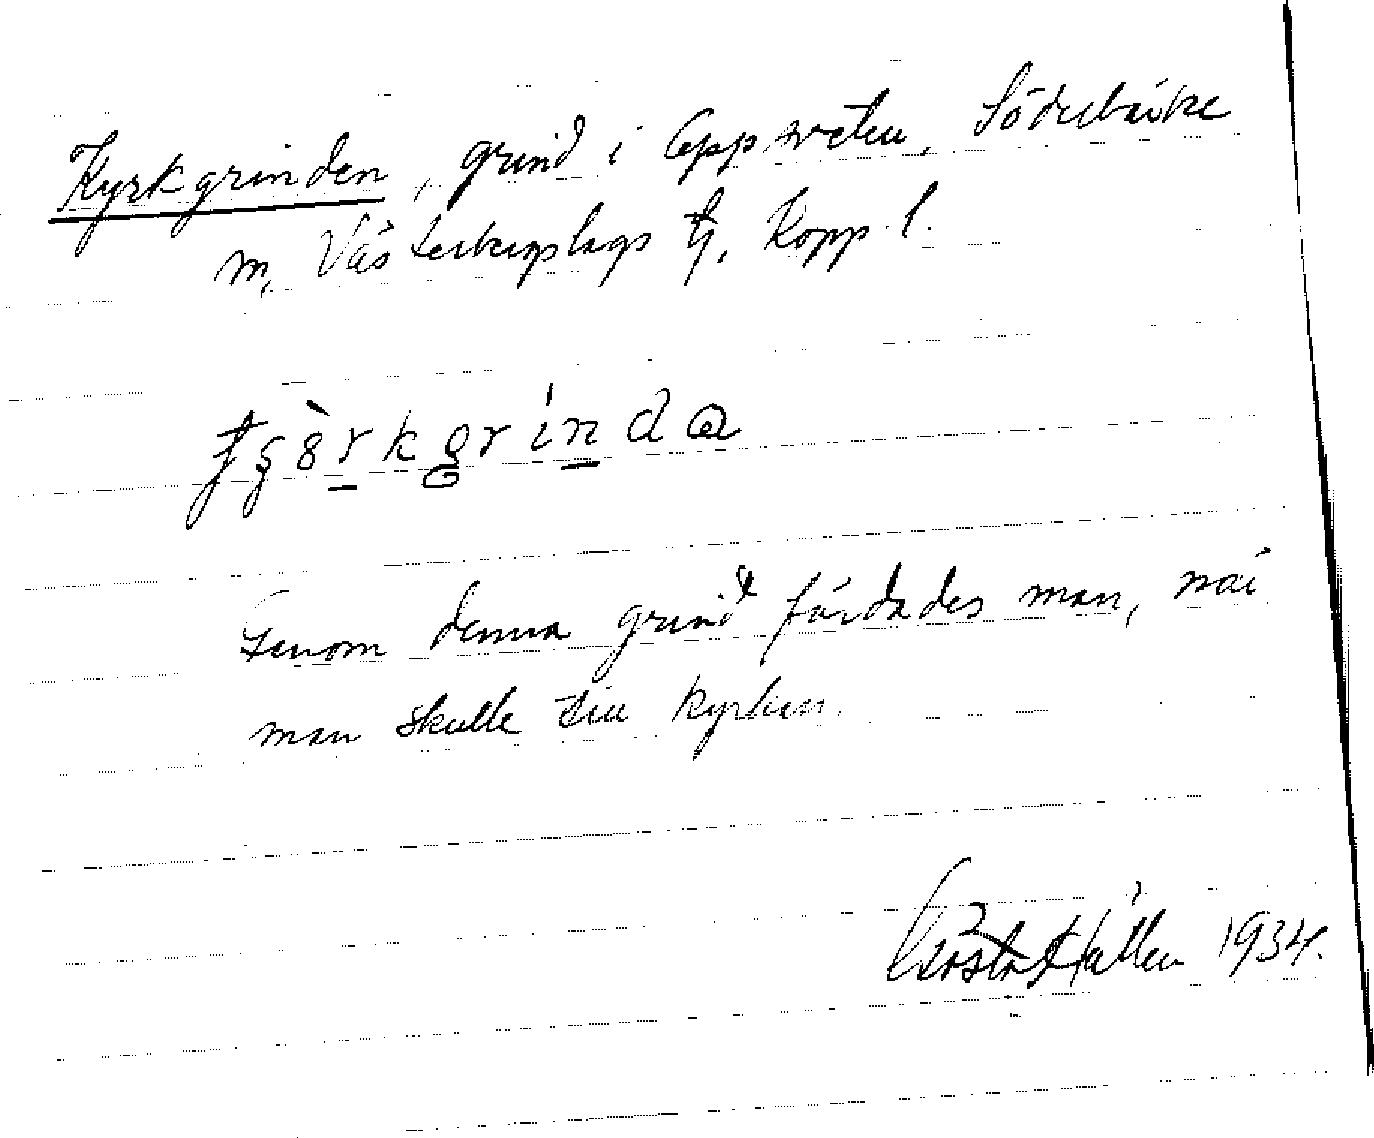 Kyrkgrinden, grind i Uppsveten, Söderbärke
m, Västerbergslags tg, Kopp. l.
Genom denna grind färdades man, när
man skulle till kyrkan.
Gösta Hållen 1934.